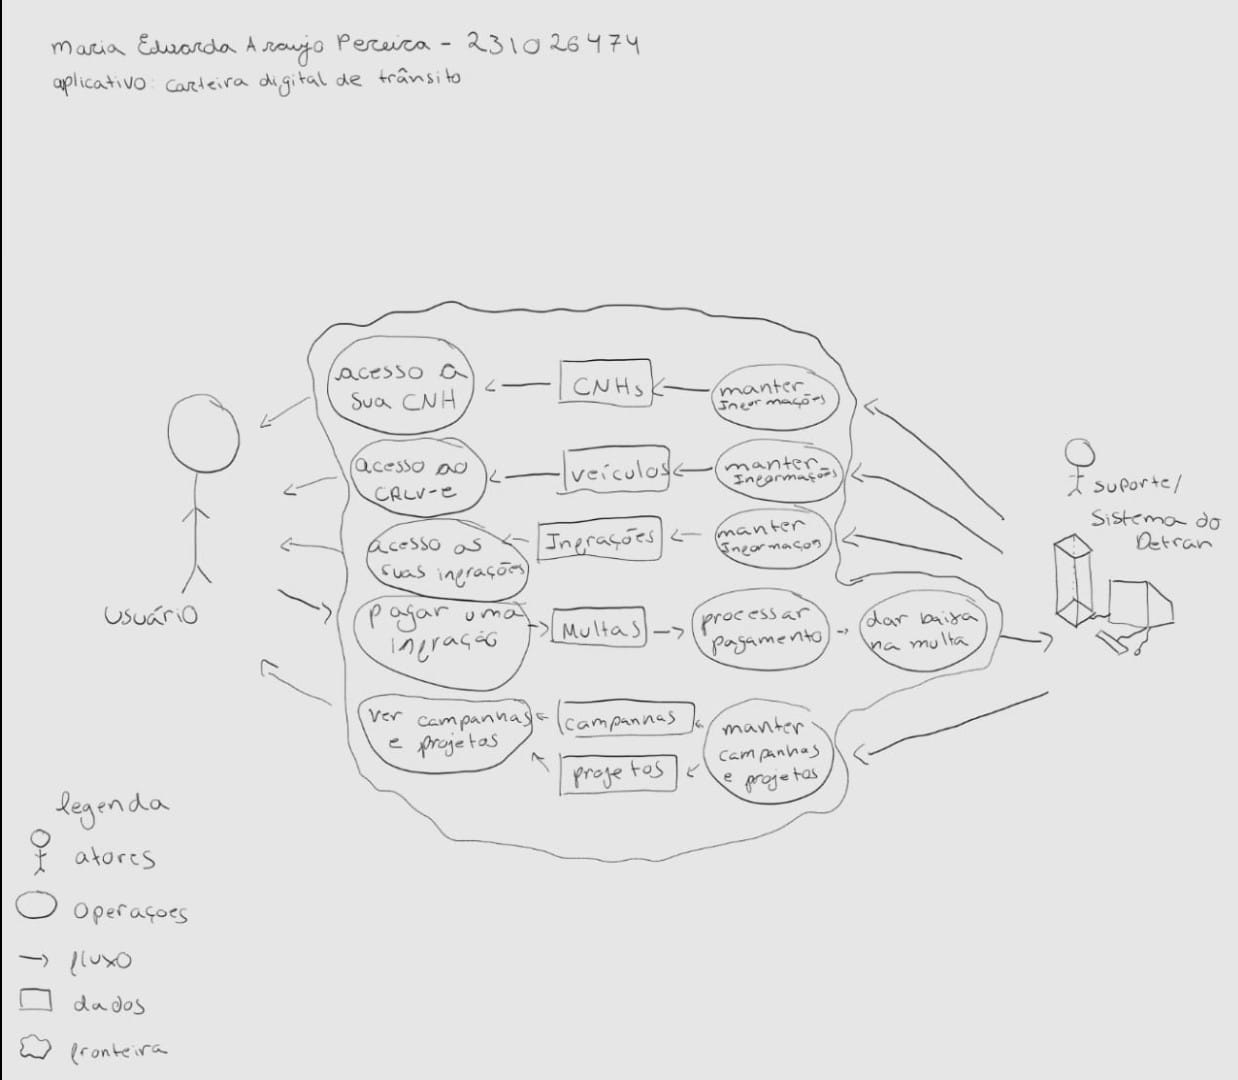 Maria Eduarda Araujo Pereira - 231026474
aplicativo: carteira digital de trânsito
acesso a
sua CNH
CNHs
manter
Informações
acesso ao
CRLV-e
veículos
manter
Informações
acesso as
suas infrações
Infrações
manter
Informaçon
pagar uma
infração
Multas
processar
pagamento
dar baixa
na multa
ver campanhas
e projetos
campanhas
projetos
manter
campanhas
e projetos
usuário
suporte/
Sistema do
Detran
legenda
atores
Operaçoes
fluxo
dados
fronteira